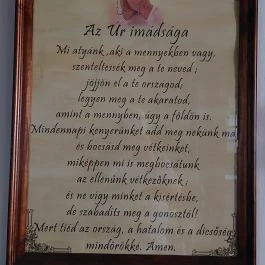 Az Úr imádsága
Mi atyánk ,aki a mennyekben vagy,
szenteltessék meg a te neved ;
jöjjön el a te országod;
legyen meg a te akaratod,
amint a mennyben, úgy a földön is.
Mindennapi kenyerünket add meg nekünk ma
és bocsásd meg vétkeinket,
miképpen mi is megbocsátunk
az ellenünk vétkezőknek ;
és ne vigy minket a kísértésbe,
de szabadíts meg a gonosztól!
Mert tiéd az ország, a hatalom és a dicsőség
mindörökké. Ámen.